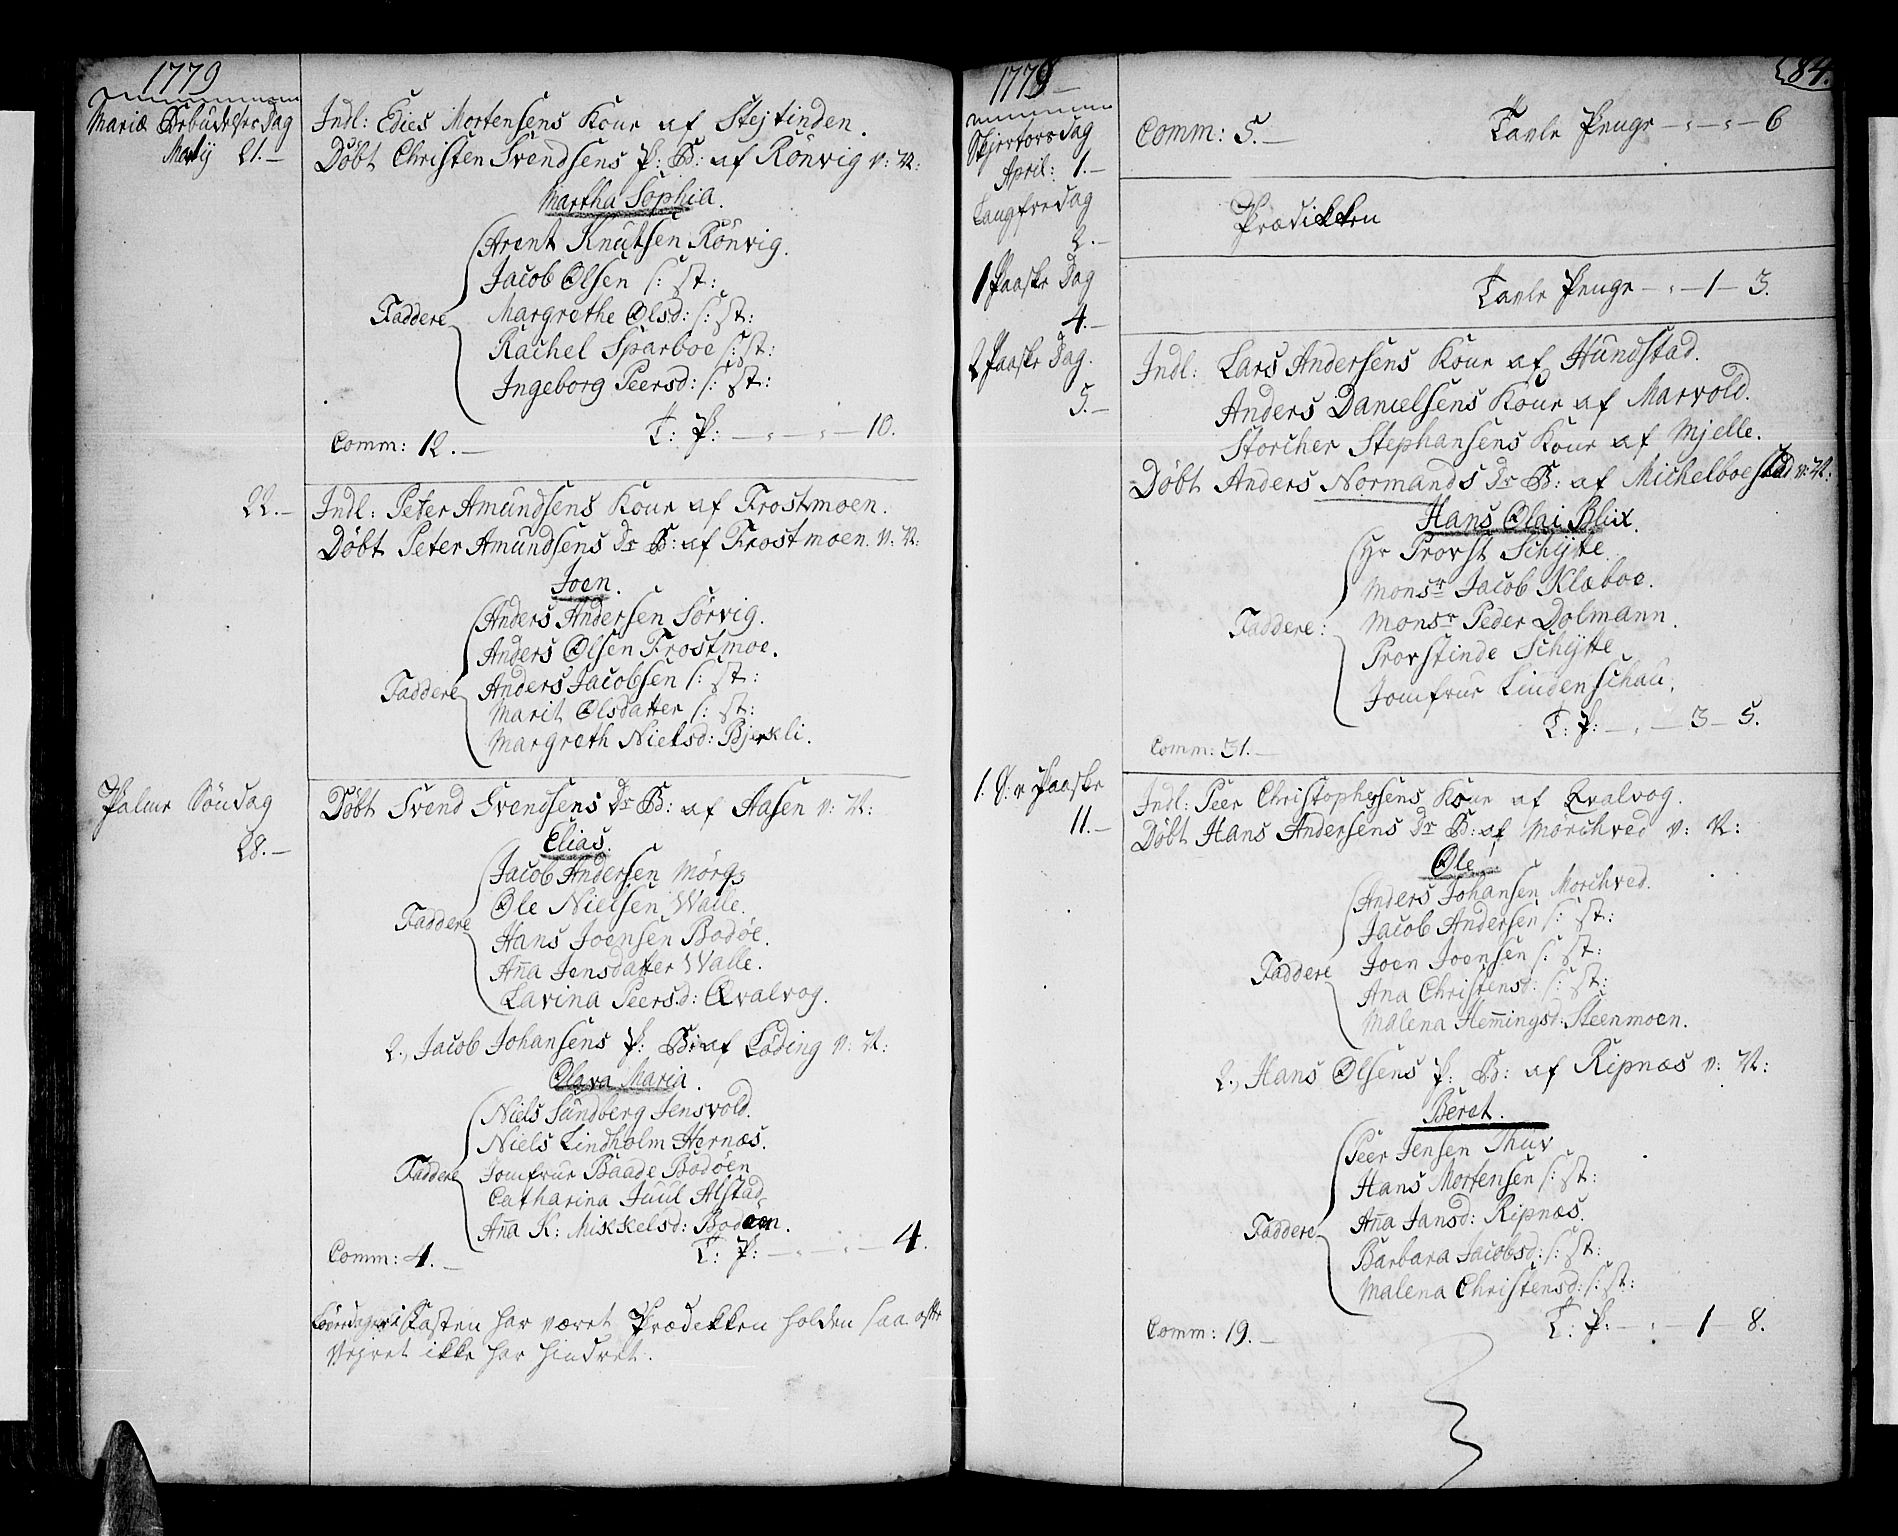 1779
Mariæ Bebudelses Dag
Martij 21.
Indl: Edies Mortensens Kone af Stejtinden.
Døbt Christen Svendsens P: B: af Rönvig v: N:
Martha Sophia.
Arent Knutsen Rönvig.
Jacob Olsen s: st:
Faddere
Margrethe Olsd: s: st:
Rachel Sparboe s: st:
Ingeborg Peersd: s: st:
Comm: 12. T: P: 10.
22.
Indl: Peter Amundsens Kone af Frostmoen.
Døbt Peter Amundsens Dr B: af Frostmoen v: N:
Joen.
Anders Andersen Sörvig.
Anders Olsen Frostmoe.
Faddere Anders Jacobsen s: st:
Marit Olsdatter s: st:
Margreth Nielsd: Bjerkli.
Palme Söndag
28.
Døbt Svend Svendsens Dr B: af Aasen v: N:
Elias.
Jacob Andersen
Ole Nielsen Walle.
Faddere
Hans Joensen Bodøe.
Ana Jensdatter Walle.
Lavina Peersd: Qvalvog.
2., Jacob Johansens P: B: af Löding v: N:
Olava Maria.
Niels Sundberg Jensvold.
Niels Lindholm Hernæs.
Faddere Jomfrue Baade Bodøen
Catharina Juul Alstad
Ana K: Mikkelsd: Bodøen.
Comm: 4. T: P: 4.
i Fasten har været Prædikken holden saa ofte
Vejret ikke har hindret.
1779
84.
Skjertorsdag
April: 1.
Comm: 5. Tavle Penge 6
Langfredag
2.
Prædikken
1 Paaske Dag
4.
Tavle Penge 1 3.
2 Paaske Dag.
5.
Indl: Lars Andersens Kone af Hundstad.
Anders Danielsens Kone af Marvold.
Storcher Stephansens Kone af Mjelle.
Døbt Anders Normands Dr B: af Michelboestad v: N:
Hans Olai Blix.
Hr Provst Schytte
Monsr Jacob Klæboe.
Faddere: Monsr Peder Dolmann.
Provstinde Schytte
Jomfrue Lindenschau.
T: P: 3 5.
Comm: 31.
1. S: e Paaske
11.
Indl: Peer Christophersens Kone af Qvalvog.
Døbt Hans Andersens Dr B: af Mörchved v: N:
Ole
Anders Johansen Morchved.
Jacob Andersen s: st:
Faddere Joen Joensen s: st:
Ana Christensd: s: st:
Malena Hemingsd: Steenmoen.
2., Hans Olsens P: B: af Ripnæs v: N:
Beret.
Peer Jensen Thuv
Hans Mortensen s: st:
Faddere Ana Jansd: Ripnæs.
Barbara Jacobsd: s: st:
Malena Christensd: s: st:
Comm: 19. T: P: 1 8.